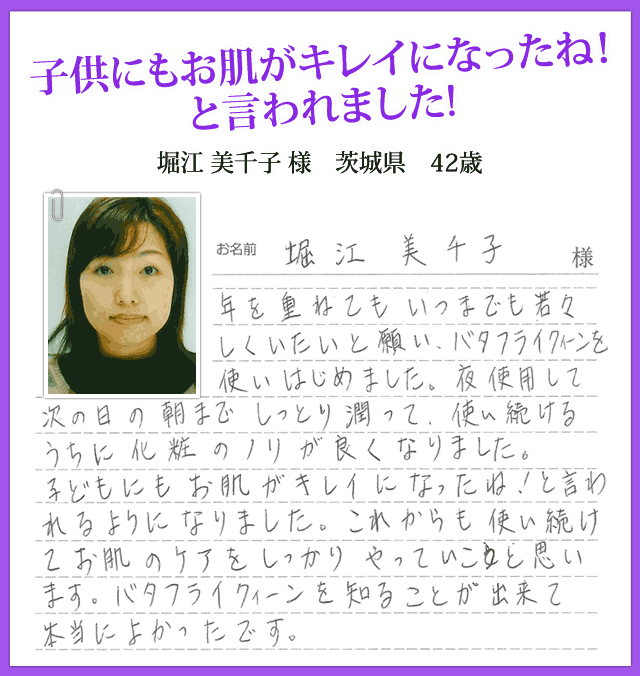 子供にもお肌がキレイになったね!
と言われました!
堀江 美千子 様 茨城県 42歳
お名前 堀江 美千子 様
年を重ねてもいつまでも若々
しくいたいと願い、バタフライクィーンを
使いはじめました。夜使用して
次の日の朝まで しっとり潤って、使い続ける
うちに化粧のノリが良くなりました。
子どもにもお肌がキレイになったね!と言わ
れるようになりました。これからも使い続け
てお肌のケアをしっかりやっていこうと思い
ます。バタフライクィーンを知ることが出来て
本当によかったです。